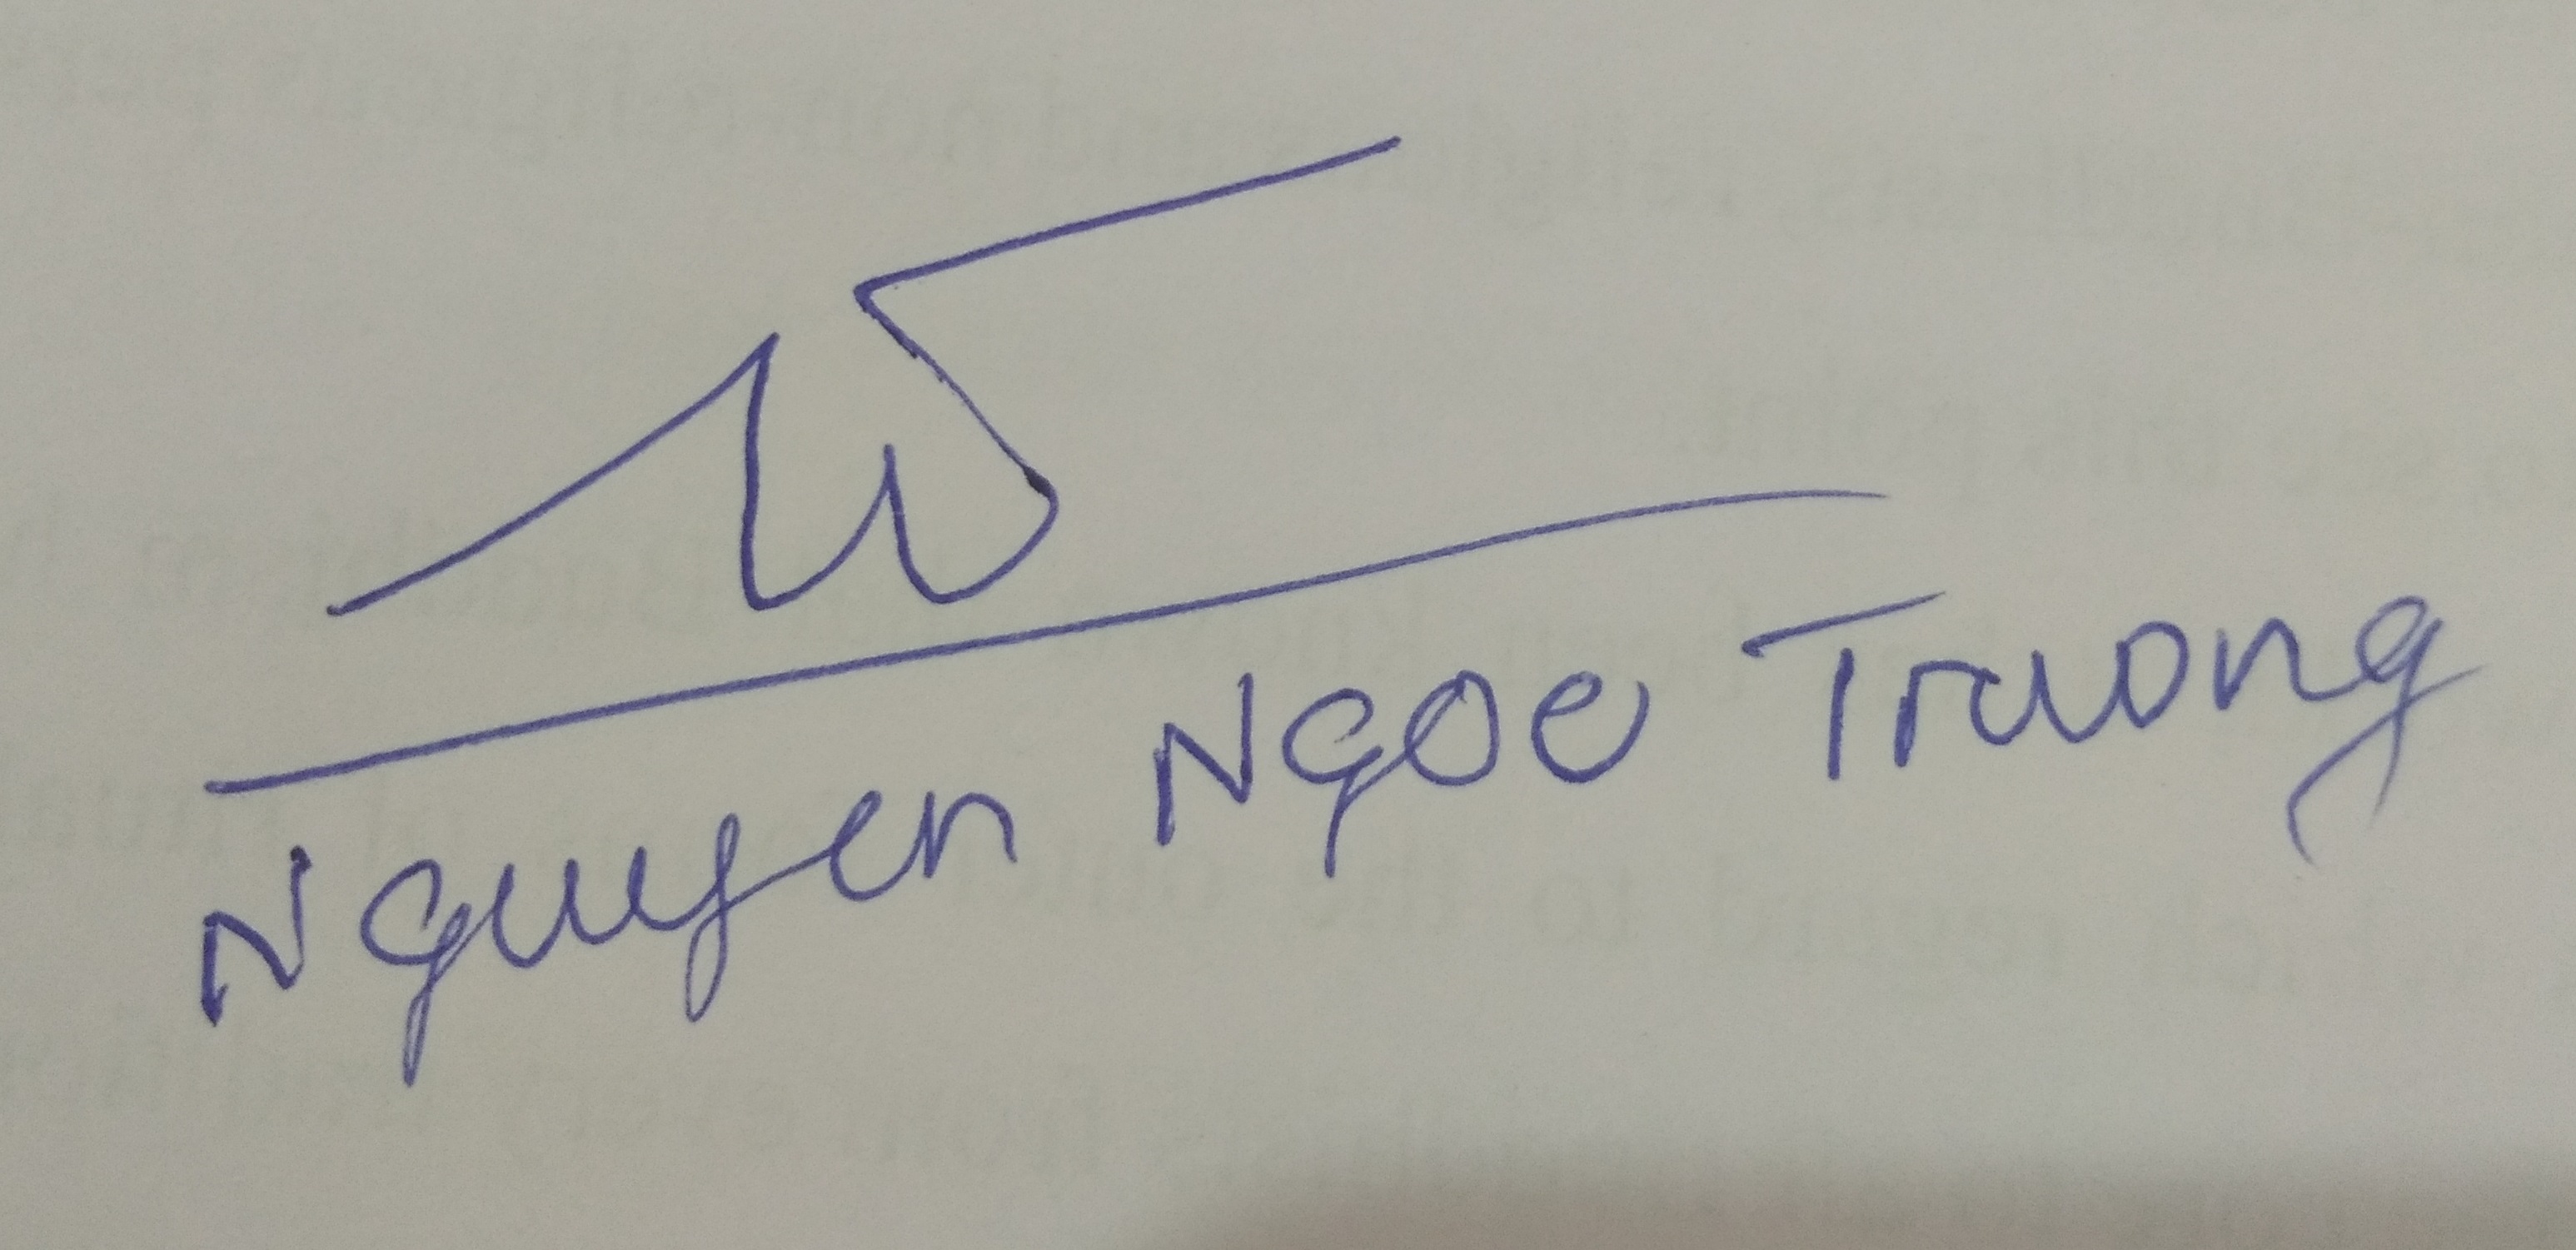 Nguyen Ngoc Truong